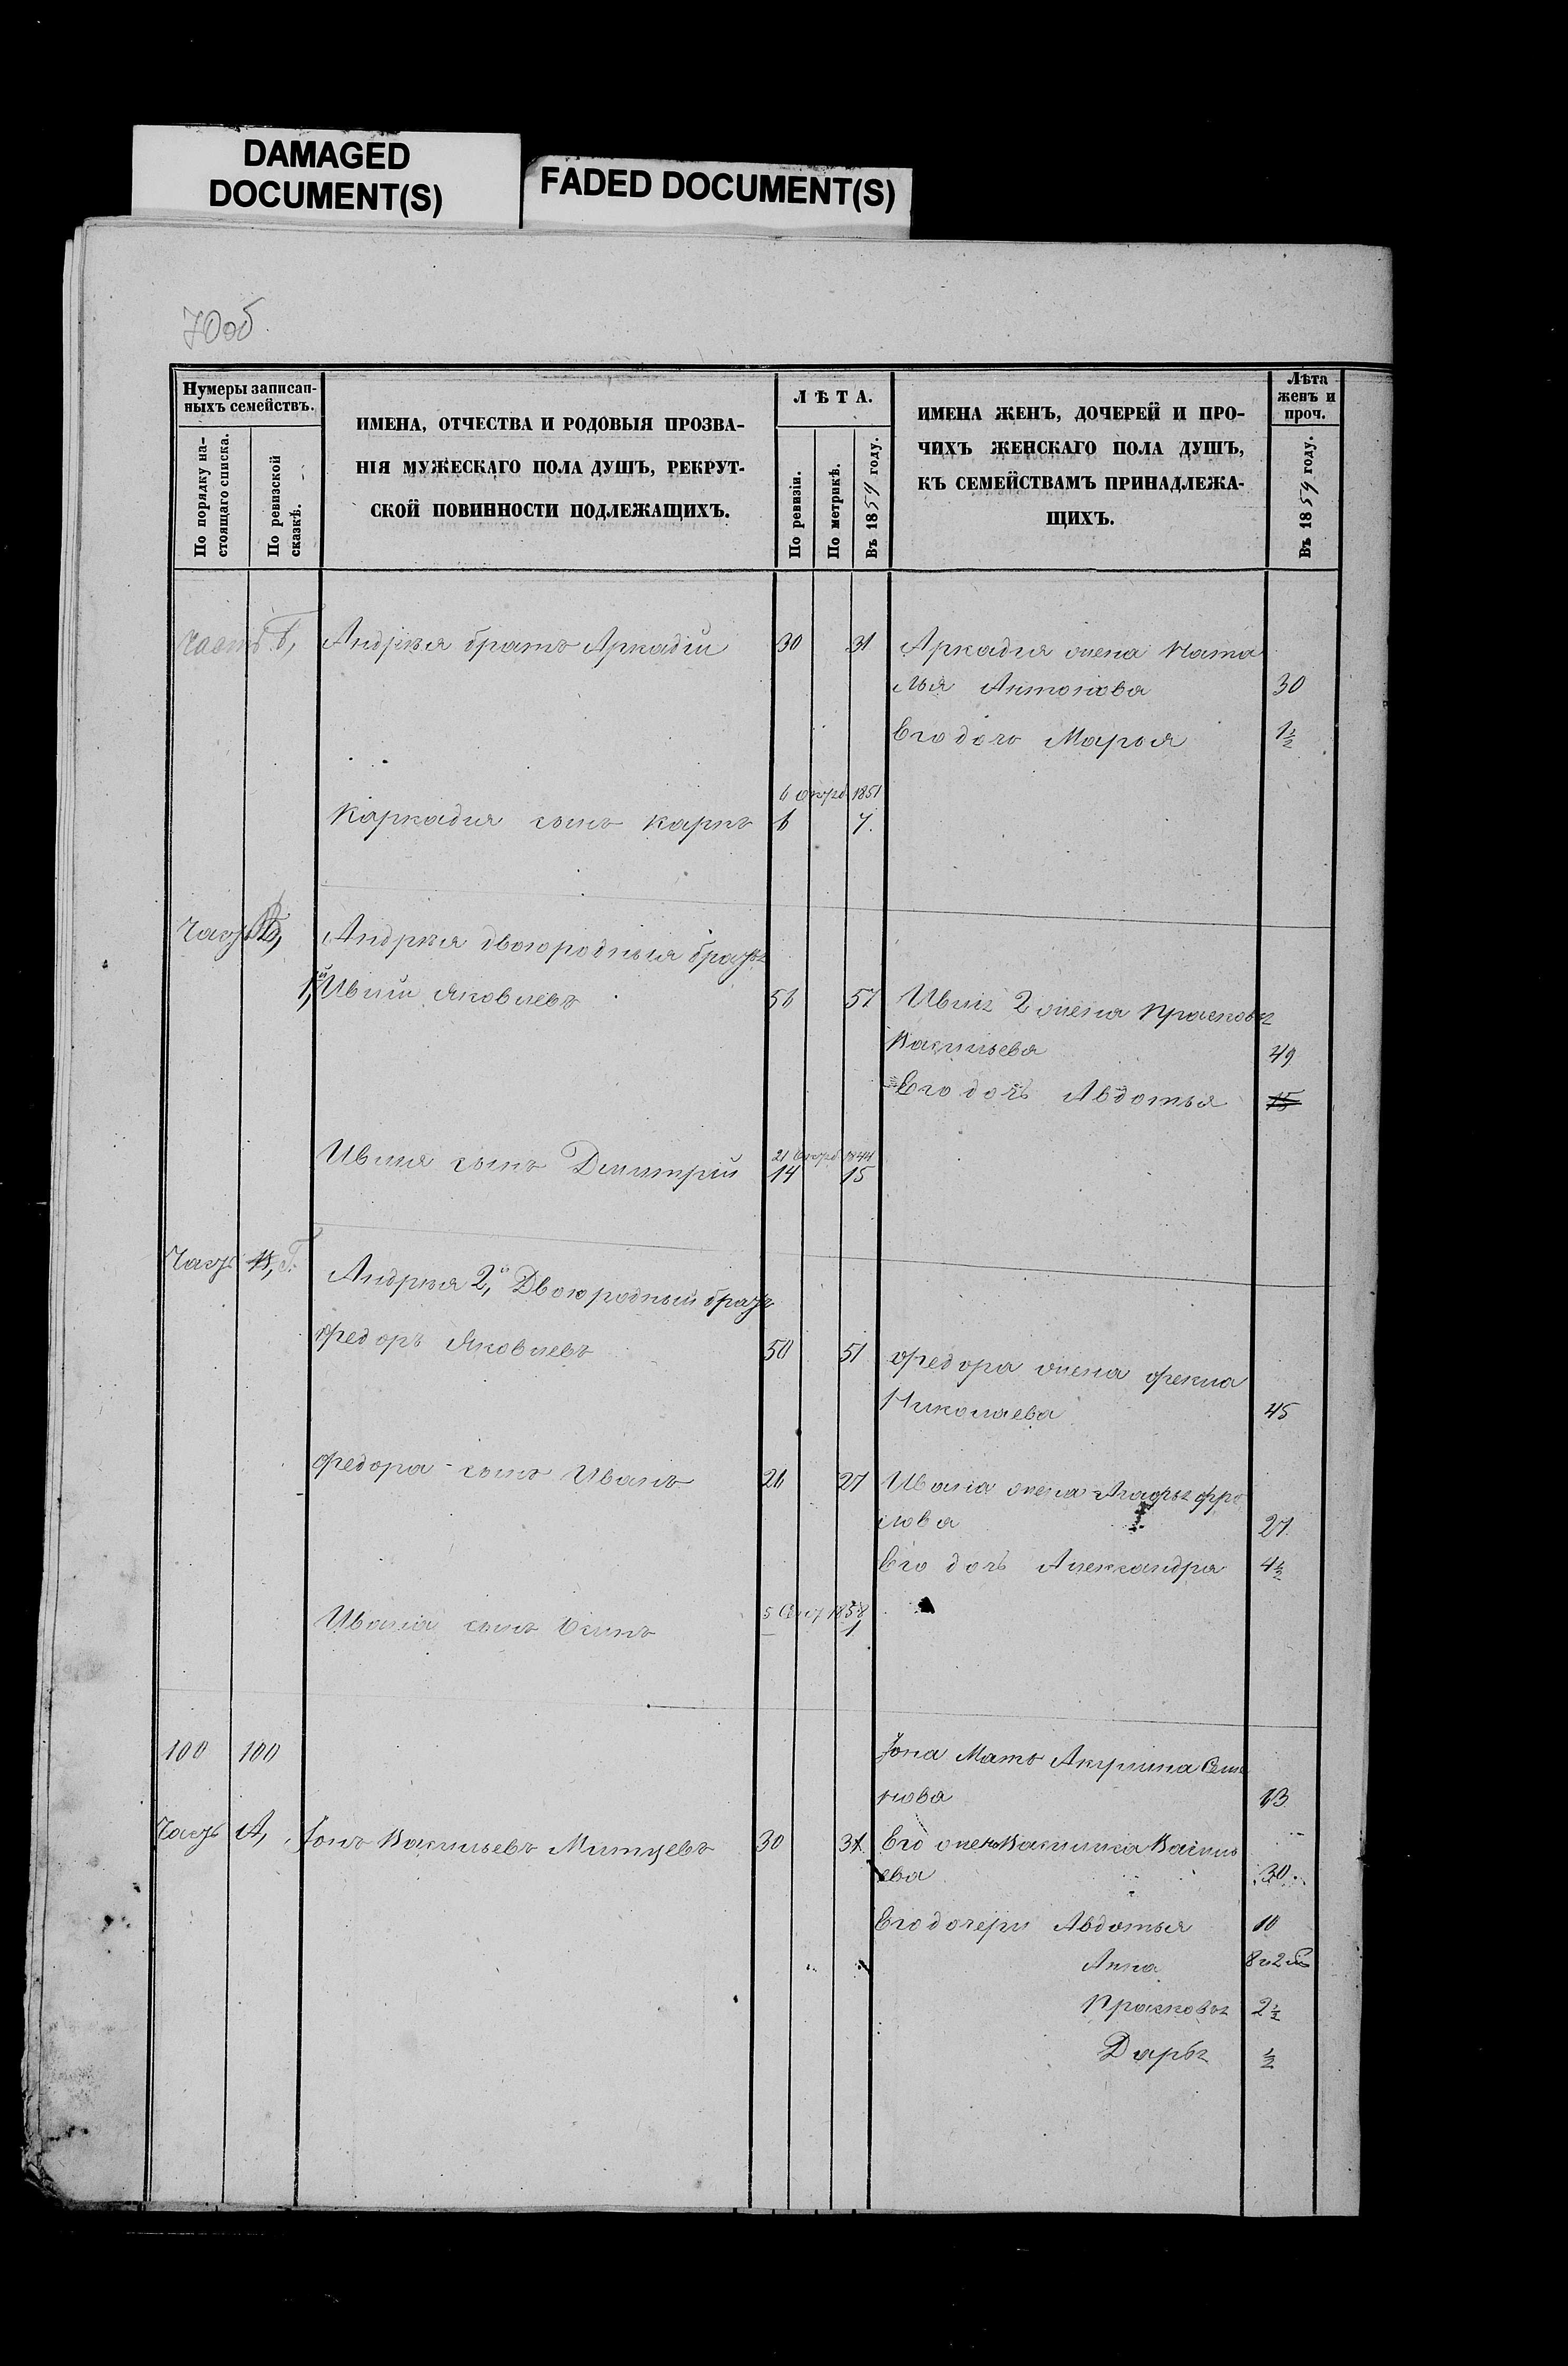 DAMAGED
DOCUMENT(S)
FADED DOCUMENT(S)
70об
Нумеры записан-
ныхъ семействъ.
По порядку на-
стоящаго списка.
По ревизской
сказкѣ.
ИМЕНА, ОТЧЕСТВА И РОДОВЫЯ ПРОЗВА-
НІЯ МУЖЕСКАГО ПОЛА ДУШЪ, РЕКРУТ-
СКОЙ ПОВИННОСТИ ПОДЛЕЖАЩИХЪ.
ЛѢТА.
По ревизіи.
По метрикѣ.
Въ 1859 году.
ИМЕНА ЖЕНЪ, ДОЧЕРЕЙ И ПРО-
ЧИХЪ ЖЕНСКАГО ПОЛА ДУШЪ,
КЪ СЕМЕЙСТВАМЪ ПРИНАДЛЕЖА-
ЩИХЪ.
Лѣта
женъ и
проч.
Въ 1859 году.
часть Андрея братъ Аркадій 30 31 Аркадія жена Ната
лья Антонова 30
Его дочь Марья 1½
6 Октрб 1851
Каркадия сынъ Карпъ 6 7.
Часть Андрея двоюродныя братья
1,й Ивлій Яковлевъ 56 57 Ивлія 2 жена Прасковья
Васильева 49
Его дочь Авдотья 15
Ивлия сынъ Дмитрій 14 15
Часть Андрея 2,й Двоюродный братъ
Федоръ Яковлевъ 50 51 Федора жена Фекла
Николаева 45
Федора сынъ Иванъ 26 27 Ивана жена Агафья Фро
лова 27.
Его дочь Александра 4½
5 Сент 1858
Ивана сынъ Осипъ 1
100 100 Іона Мать Акулина Семе
нова
Часть А, Іонъ Васильевъ Митцевъ 30 31 Его жена Василиса Василь
ева 30.
Его дочери Авдотья 10
Анна
Прасковья 2½
Дарья ½